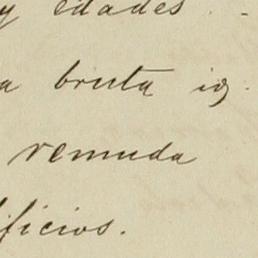 y edades.
a bruta id.
remuda
ificios.